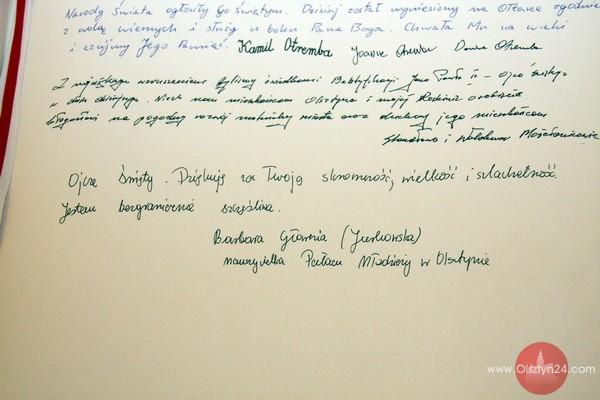 Narody Świata ogłosiły Go Świętym. Dzisiaj został wyniesiony na Ołtarze zgodnie
z wolą wiernych i służy u boku Pana Boga. Chwała Mu na wieki
i czcijmy Jego Pamięć. Kamil Otremba Joanna Otremba Otremba
Z wzruszeniem byliśmy świadkami Beatyfikacji Jana Pawła II - ojca świętego
w dniu dzisiejszym. Niech nam mieszkańcom Olsztyna i mojej Rodzinie
błogosławi na pogodny rozwój miasta oraz duchowy jego mieszkańców
i
Ojcze Święty. Dziękuję za Twoją skromność, wielkość i szlachetność.
Jestem bezgranicznie szczęśliwa.
Barbara Głownia (Jurkowska)
nauczycielka Pałacu Młodzieży w Olsztynie
www.Olsztyn24.com